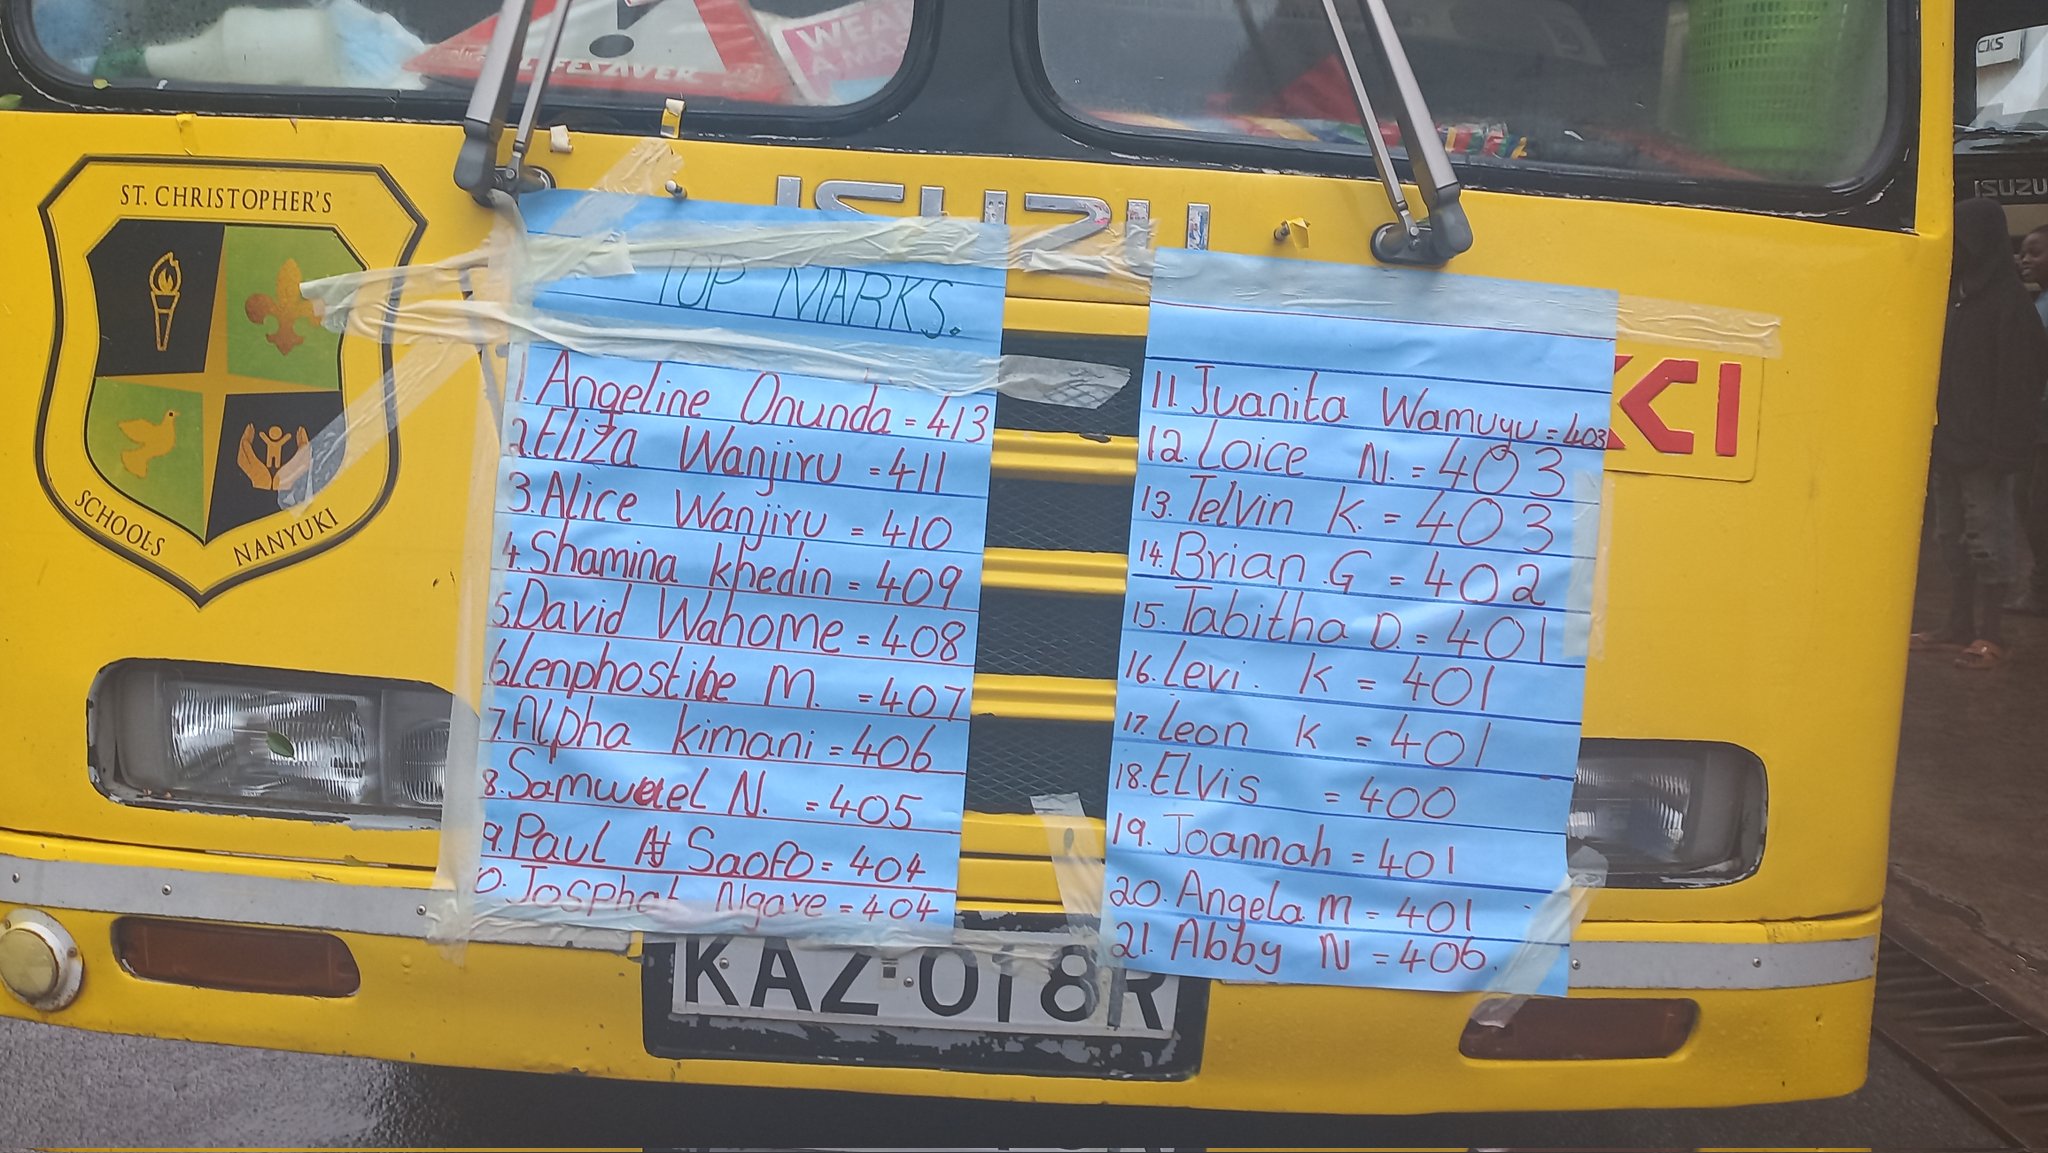 LIFESAVER
WEA
A MA
CKS
ISUZU
ST. CHRISTOPHER'S
SCHOOLS
NANYUKI
ISUZU
TOP MARKS.
1. Angeline Onunda = 413
2. Eliza Wanjiru = 411
3. Alice Wanjiru = 410
4. Shamina Khedin = 409
5. David Wahome = 408
6. Lenphostine M. = 407
7. Alpha Kimani = 406
8. Samwel N. = 405
9. Paul N Saofo = 404
0. Josphat Ngare = 404
11. Juanita Wamuyu = 403
12. Loice N. = 403
13. Telvin K. = 403
14. Brian .G = 402
15. Tabitha D. = 401
16. Levi. K = 401
17. Leon K = 401
18. ELVIS = 400
19. Joannah = 401
20. Angela M = 401
21. Abby N = 406.
KCI
KAZ 018R